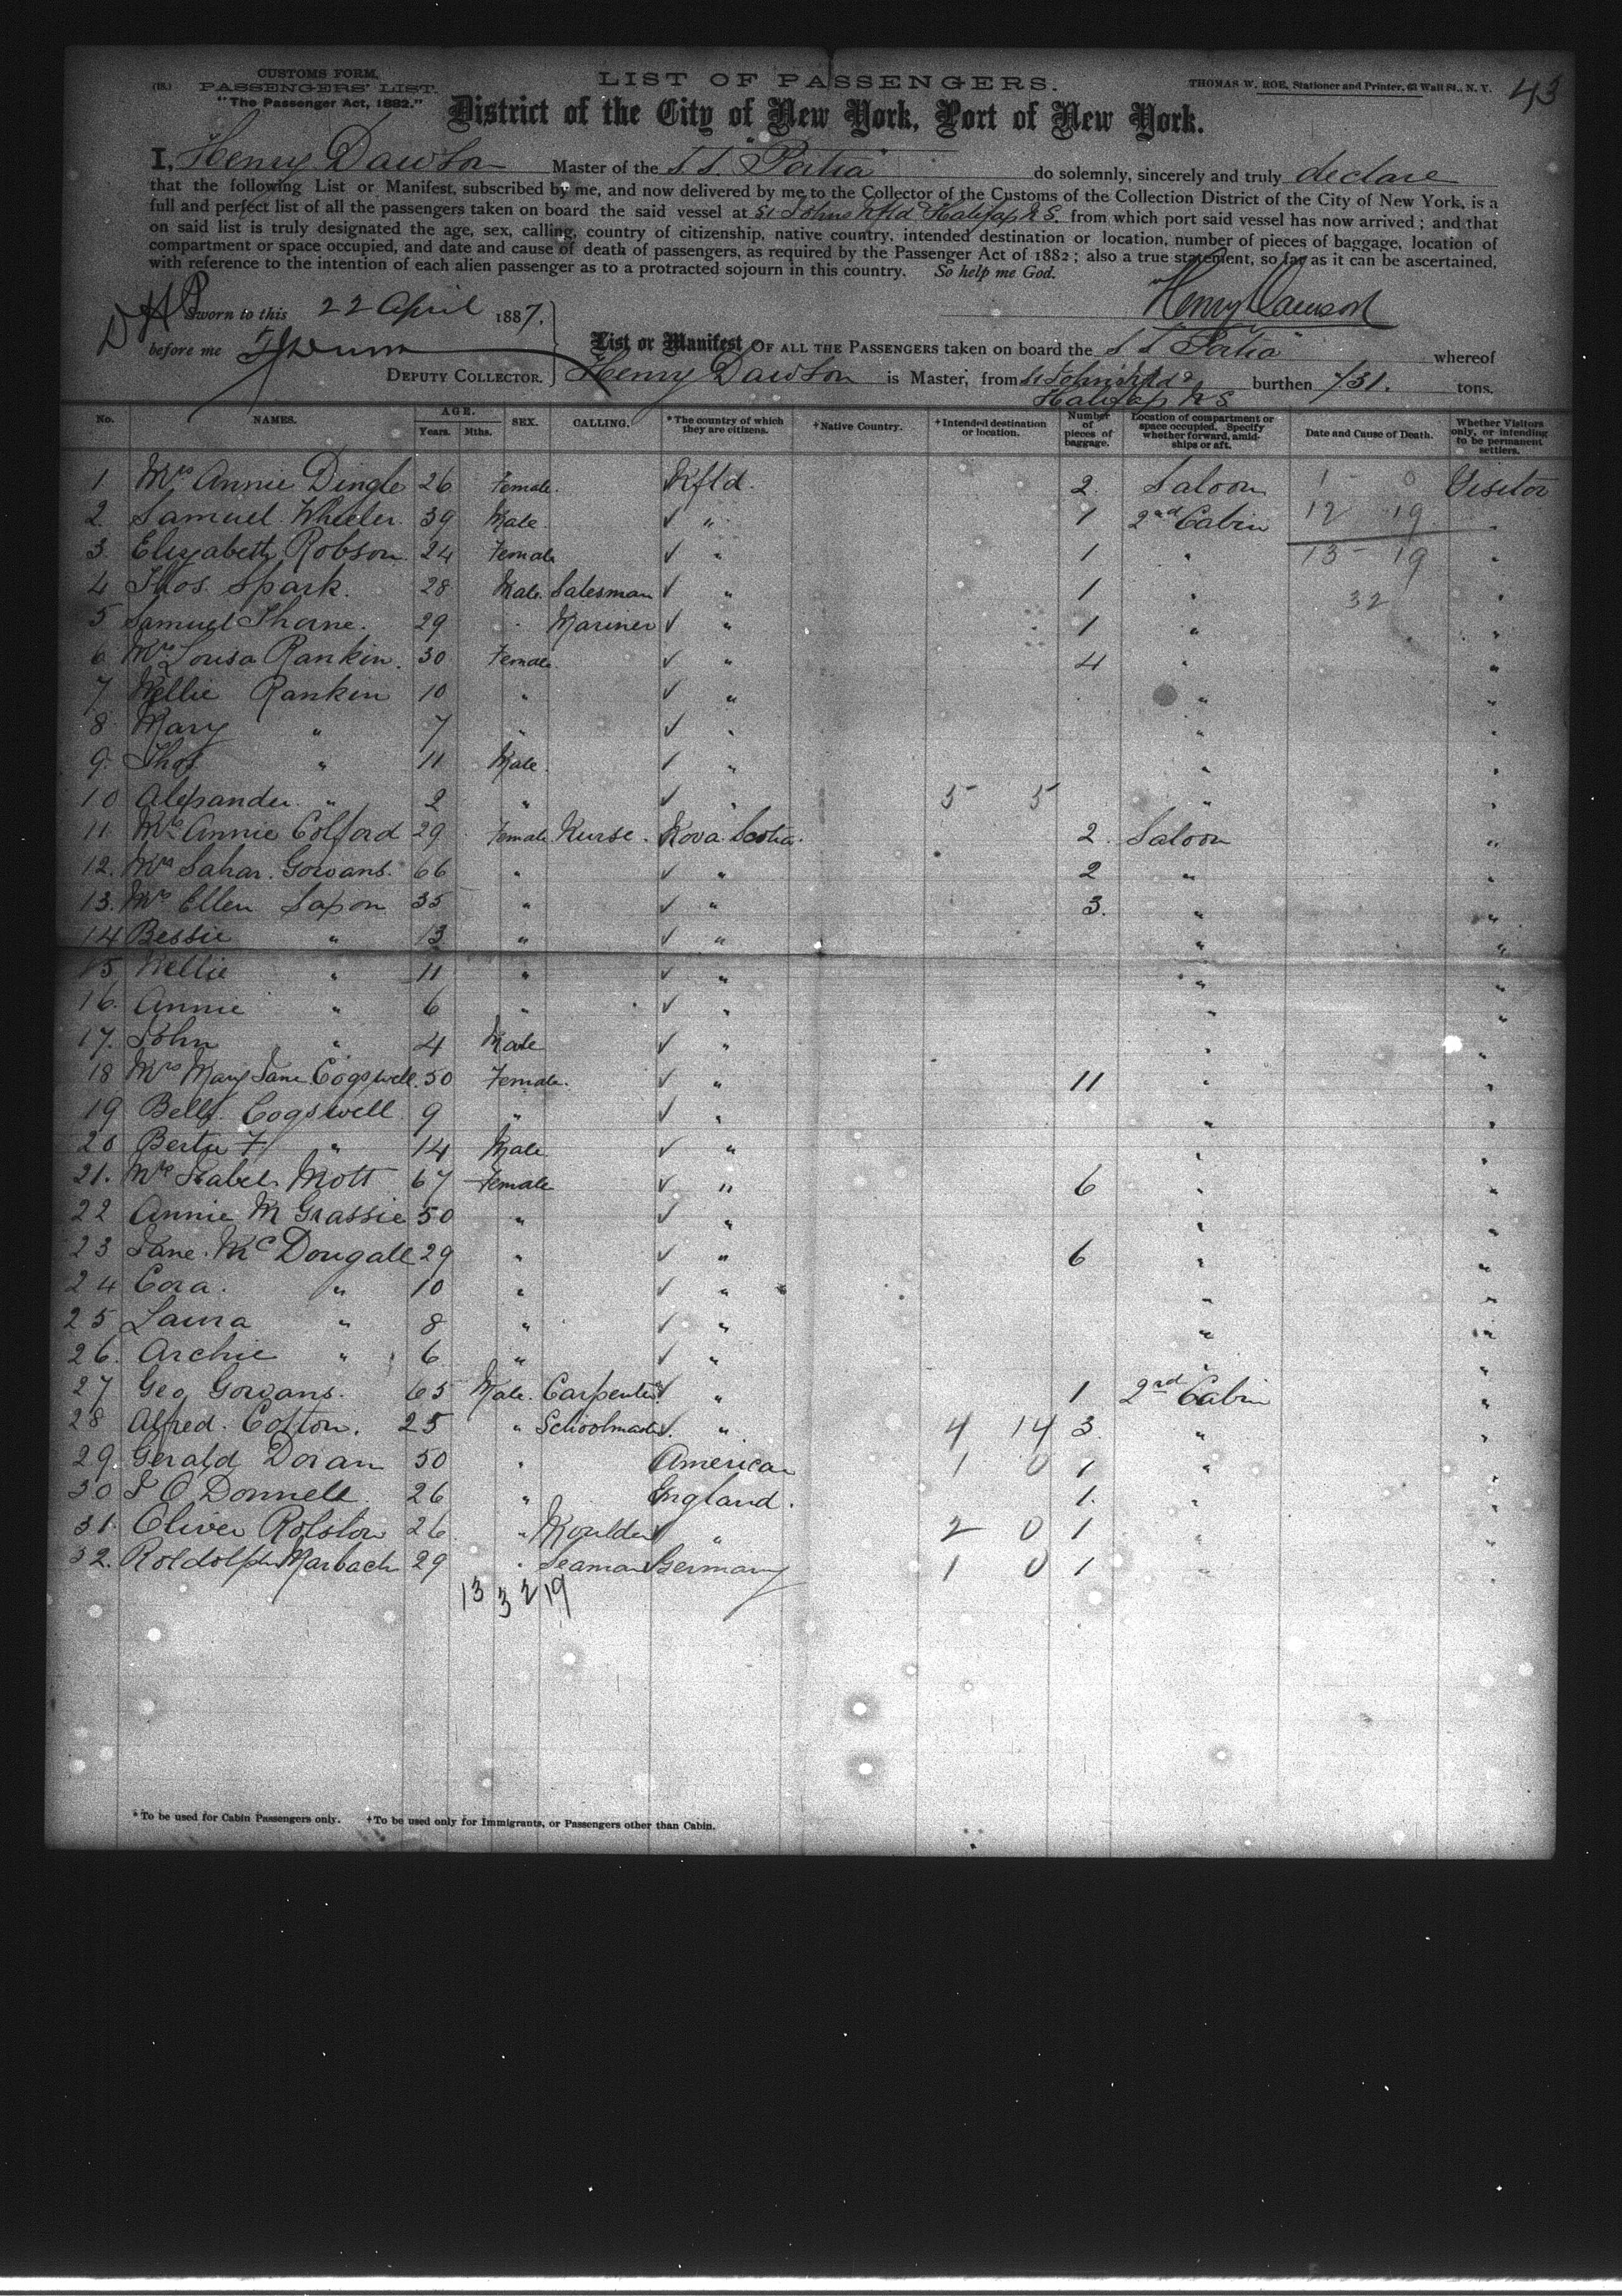 43
CUSTOMS FORM.
(18.) PASSENGERS' LIST.
"The Passenger Act, 1882."
LIST OF PASSENGERS.
THOMAS W. ROE, Stationer and Printer, 63 Wall St., N. Y.
District of the City of New York, Port of New York.
I, Henry Dawson Master of the S.S. "Portia" do solemnly, sincerely and truly declare
that the following List or Manifest, subscribed by me, and now delivered by me to the Collector of the Customs of the Collection District of the City of New York, is a
full and perfect list of all the passengers taken on board the said vessel at St Johns Nfld & Halifax N.S. from which port said vessel has now arrived; and that
on said list is truly designated the age, sex, calling, country of citizenship, native country, intended destination or location, number of pieces of baggage, location of
compartment or space occupied, and date and cause of death of passengers, as required by the Passenger Act of 1882; also a true statement, so far as it can be ascertained,
with reference to the intention of each alien passenger as to a protracted sojourn in this country. So help me God.
Sworn to this 22 April 1887.
Henry Dawson
before me
DEPUTY COLLECTOR.
List or Manifest OF ALL THE PASSENGERS taken on board the S S "Portia" whereof
Henry Dawson is Master, from St Johns Nfld & burthen 731. tons.
Halifax N S
No. NAMES. AGE. Years. Mths. SEX. CALLING. *The country of which they are citizens. †Native Country. †Intended destination or location. Number of pieces of baggage. Location of compartment or space occupied. Specify whether forward, amidships or aft. Date and Cause of Death. Whether Visitors only, or intending to be permanent settlers.
1 Mrs Annie Dingle 26 Female. Nfld. 2. Saloon 1 - 0 Visitor
2. Samuel Wheeler. 39 Male. ✓ " 1 2nd Cabin 12 19 "
3. Elizabeth Robson 24 Female ✓ " 1 " 13 - 19 "
4 Thos. Spark. 28 Male. Salesman ✓ " 1 " 32 "
5 Samuel Thorne. 29 " Mariner ✓ " 1 " "
6 Mrs Louisa Rankin. 30 Female. ✓ " 4 " "
7 Nellie Rankin 10 " ✓ " " "
8 Mary " 7 " ✓ " " "
9. Thos " 11 Male. ✓ " " "
10 Alexander " 2 " ✓ " 5 5 " "
11. Mrs Annie Colford 29 Female Nurse. Nova Scotia. 2. Saloon "
12. Mrs Sahar. Gowans. 66 " ✓ " 2 " "
13. Mrs Ellen Saxon 35 " ✓ " 3. " "
14 Bessie " 13 " ✓ " " "
15 Nellie " 11 " ✓ " " "
16. Annie " 6 " ✓ " " "
17. John " 4 Male ✓ " " "
18 Mrs Mary Jane Cogswell. 50 Female. ✓ " 11 " "
19 Bell. Cogswell 9 " ✓ " " "
20 Bertie F " 14 Male ✓ " " "
21. Mrs Isabel Mott 67 Female ✓ " 6 " "
22 Annie M Grassie 50 " ✓ " " "
23 Jane. Mc Dougall 29 " ✓ " 6 " "
24 Cora. " 10 " ✓ " " "
25 Laura " 8 " ✓ " " "
26. Archie " 6 " ✓ " " "
27 Geo Gowans. 65 Male. Carpenter ✓ " 1 2nd Cabin "
28 Alfred. Colton. 25 " Schoolmaster. ✓ " 4 14 3. " "
29. Gerald Doran 50 " American 1 0 1 " "
30 J O Donnell 26 " England. 1. " "
31. Oliver Rolston 26 " Moulder ✓ " 2 0 1 " "
32. Roldolph Marbach 29 " Seaman Germany 1 0 1 " "
13 3 2 19
*To be used for Cabin Passengers only. †To be used only for Immigrants, or Passengers other than Cabin.